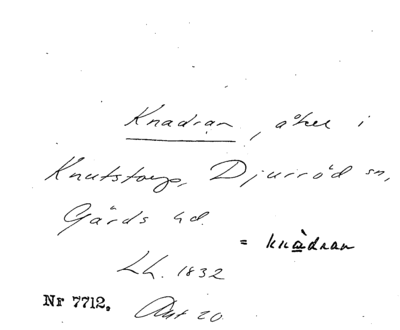 Knadran, åker i
Knutstorp, Djurröd sn,
Gärds hd.
= knàdran
Lh. 1832
Nr 7712. Akt 20